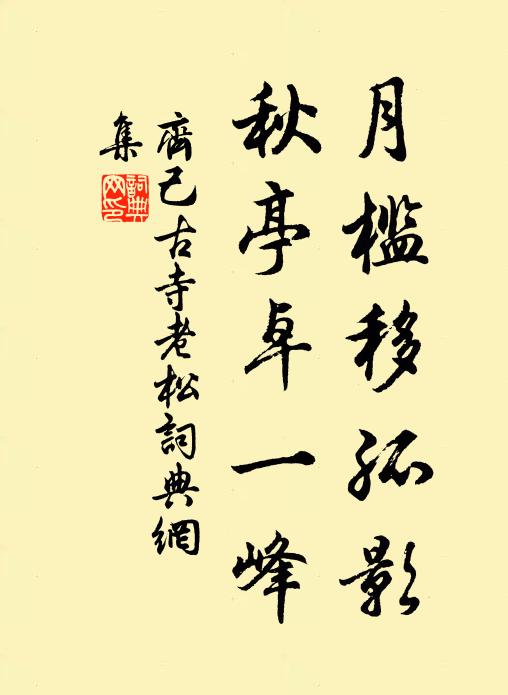 月檻移孤影
秋亭卓一峰
齊己古寺老松詞典網
集
詞典
网印